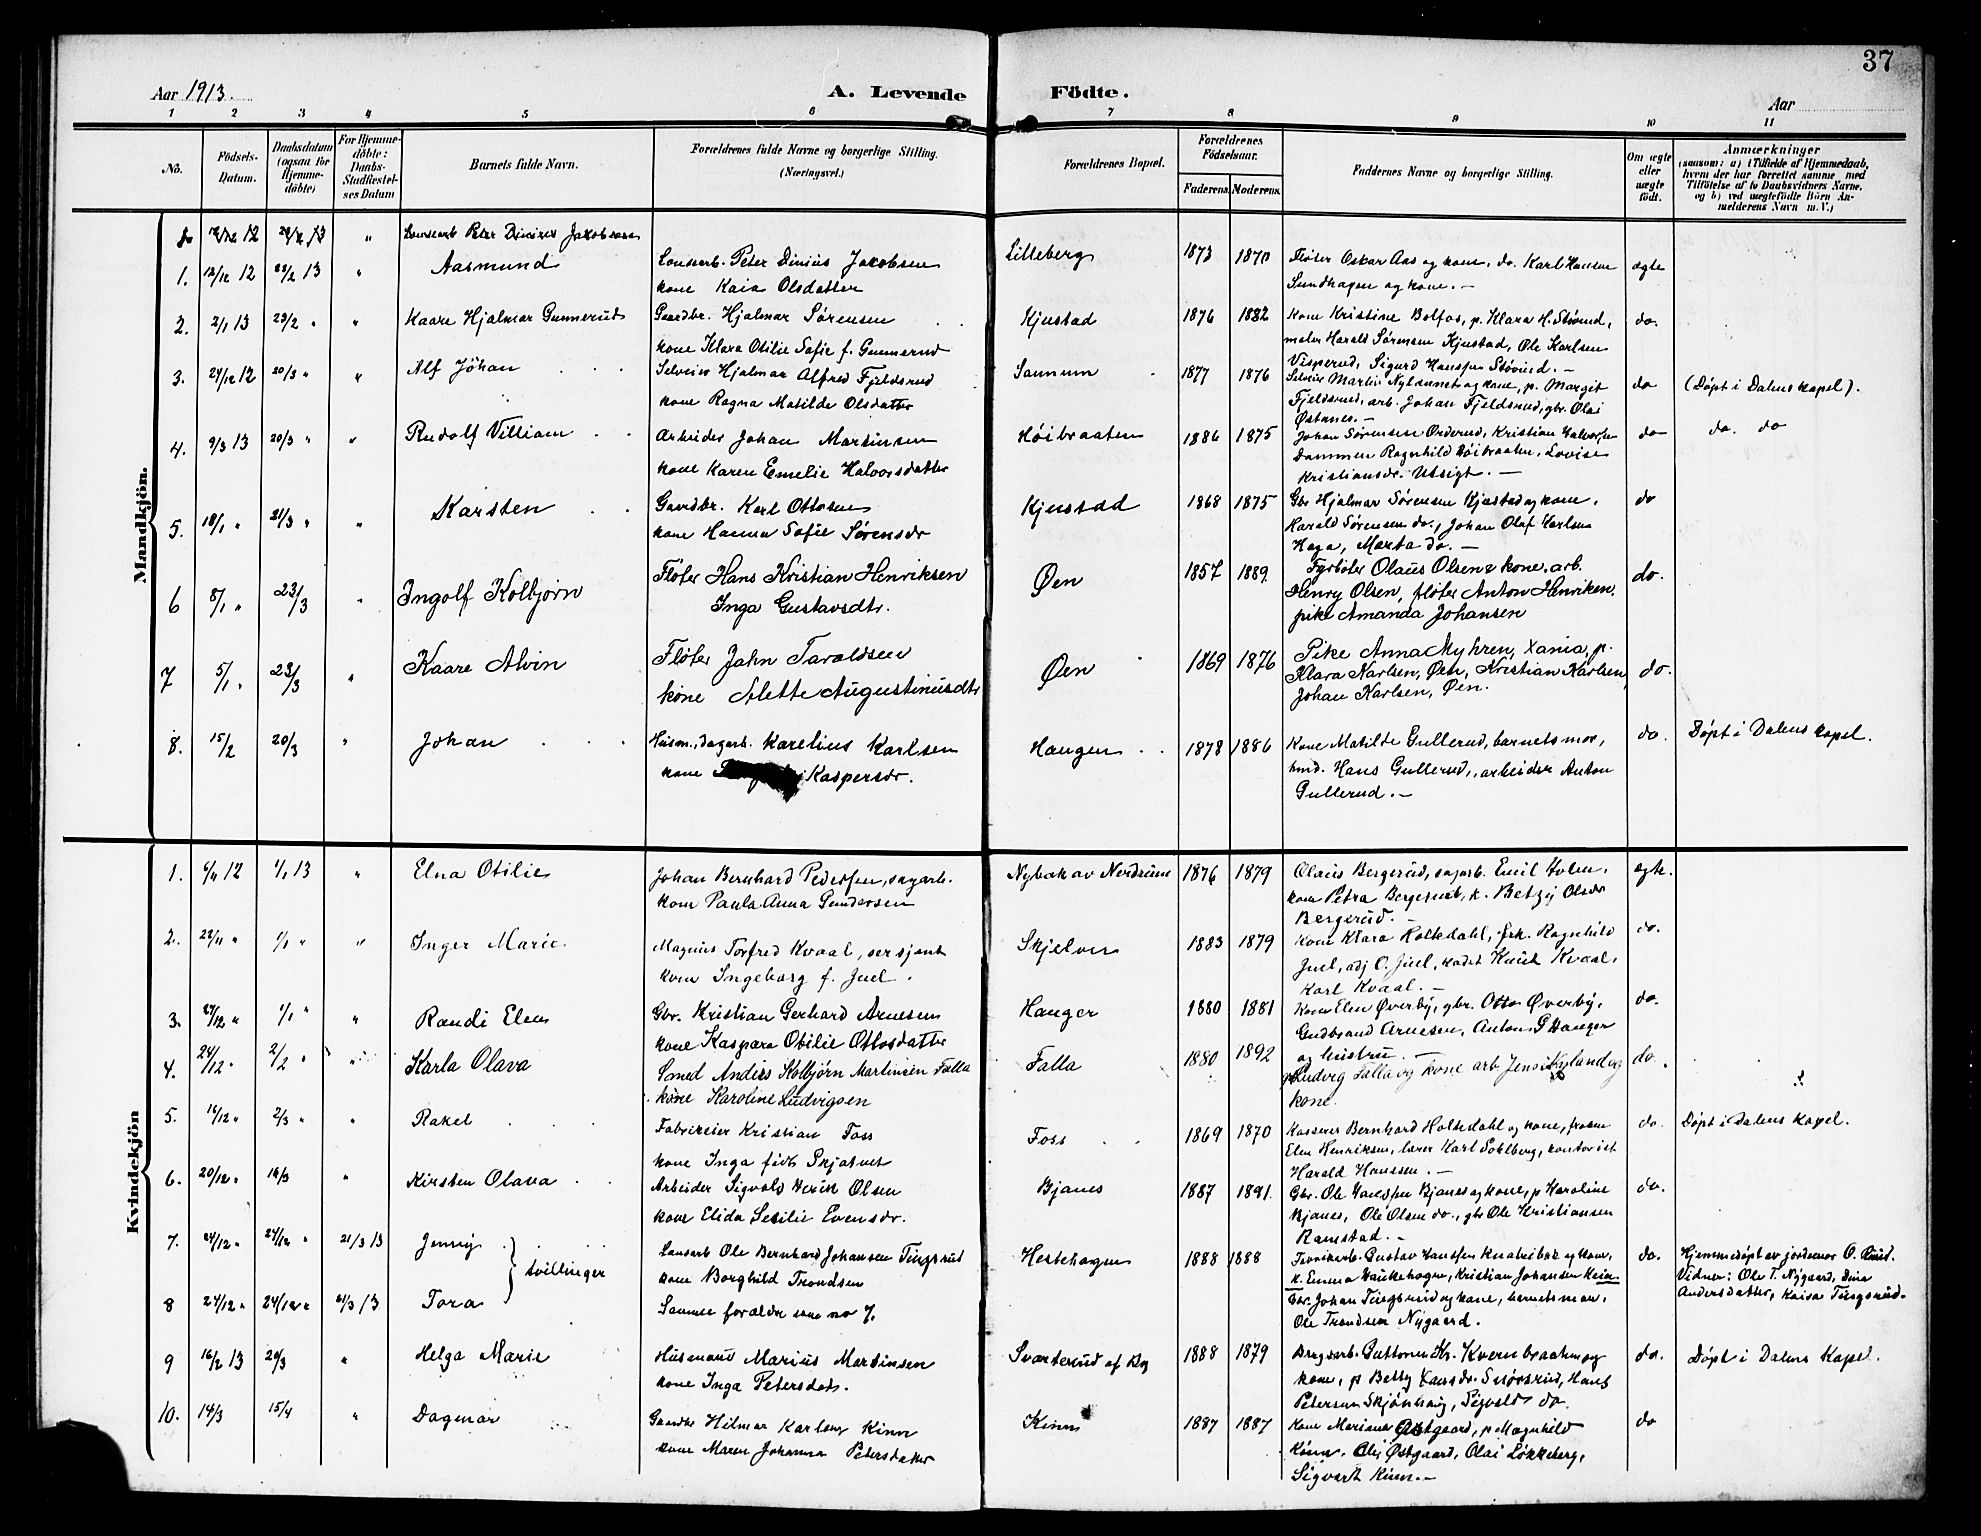 37
Aar 1913.
A. Levende Födte.
Aar
1 2 3 4 5 6 7 8 9 10 11
No.
Födsels-Datum.
Daabsdatum (ogsaa for Hjemme-döbte)
For Hjemme-döbte: Daabs-Stadfæstelses Datum
Barnets fulde Navn.
Forældrenes fulde Navne og borgerlige Stilling.
(Næringsvei.)
Forældrenes Bopæl.
Forældrenes Födselsaar.
Faderens. Moderens.
Faddernes Navne og borgerlige Stilling.
Om ægte eller uægte födt.
Anmærkninger
(saasom: a) i Tilfælde af Hjemmedaab, hvem der har forrettet samme med Tilföielse af to Daabsvidners Navne, og b) ved uægtefödte Börn Anmelderens Navn m. V.)
Mandkjön.
Peter Dinius Jakobsen
1. 12/12 12 23/2 13 " Aasmund Peter Dinius Jakobsen Lilleberg 1873 1870 Fløter Oskar Aas og kone, do. Karl Hansen ægte
kone Kaia Olsdatter Sundhagen og kone. —
2. 2/1 13 23/2 " " Kaare Hjalmar Gunnerud Gaardbr. Hjalmar Sørensen Kjustad 1876 1882 Kone Kristine Bolfos, p. Klara H. Støvind, do.
kone Klara Otilie Sofie f. Gunnerud Harald Sørensen Kjustad, Ole Karlsen
3. 24/12 12 20/3 " " Alf Johan Selveier Hjalmar Alfred Fjeldsrud Sannum 1877 1876 Visperud, Sigurd Hanssen Støvind. —
Selveier Martin og kone, p. Margit do (Døpt i Dalens kapel).
kone Ragna Matilde Olsdatter Fjeldsrud, arb. Johan Fjeldsrud, gbr. Olai
Østanes. —
4. 9/3 13 20/3 " " Rudolf Villiam Arbeider Johan Martinsen Høibraaten 1886 1875 Johan Sørensen Orderud, Kristian Halvorsen do do. do
kone Karen Emelie Halvorsdatter Dammen Ragnhild Høibraaten, Lovise
Kristiansdr. Utsigt. —
5. 18/1 " 21/3 " " Karsten Gaardbr. Karl Ottosen Kjustad 1868 1875 Gbr Hjalmar Sørensen Kjustad og kone, do
kone Hanna Sofie Sørensdr Harald Sørensen do., Johan Olaf Karlsen
Haga, Marta do. —
6 8/1 " 23/3 " Ingolf Kolbjørn Fløter Hans Kristian Henriksen Øen 1857 1889. Fyrbøter Olaus Olsen & kone, arb. do.
Inga Gustavsdtr. Henry Olsen, fløter Anton Henriken.
pike Amanda Johansen
7 5/1 " 23/3 " Kaare Alvin Fløter John Taraldsen Øen 1869 1876 Pike Anna Myhren, Xania, p. do.
kone Alette Augustinusdtr Klara Karlsen, Øen, Kristian Karlsen,
Johan Karlsen, Øen.
8. 15/2 20/3 " Johan Husm., dagarb. Karelius Karlsen Haugen 1878 1886 Kone Matilde Gullerud, barnets mor, do. Døpt i Dalens kapel.
kone Kaspersdr. hmd. Hans Gullerud, arbeider Anton
Gullerud. —
Kvindekjön
1. 6/11 12 1/1 13 " Elna Otilie Johan Bernhard Pedersen, sagarb. Nybak av Nordrum 1876 1879 Olaus Bergerud, sagarb. Emil Holm, ægte.
kone Paula Anna Gundersen kone Petra Bergerud, k. Betzy Olsdr
Bergerud. —
2. 22/11 " 1/1 " " Inger Marie Magnus Torfred Kvaal, sersjant Skjelver 1883 1879 Kone Klara Holtedahl, frk. Ragnhild do.
kone Ingeborg f. Juel. Juel, adj O. Juel, kadet Knut Kvaal,
Karl Kvaal. —
3. 27/12 " 1/1 " " Randi Elen Gbr. Kristian Gerhard Arnesen Hauger 1880 1881 Kone Elen Øverby, gbr. Otto Øverby, do.
kone Kaspara Otilie Ottosdatter Gudbrand Arnesen, Anton G Hauger
og hustru. —
4. 24/12 " 2/2 " " Karla Olava Smed Anders Kolbjørn Martinsen Falla Falla 1880 1892 Ludvig Falla og kone arb Jens Nyland og do.
kone Karoline Ludvigsen kone.
5. 16/12 " 2/3 " " Rakel Fabrikeier Kristian Foss Foss 1869 1870 Kasserer Bernhard Holtedahl og kone, frøken do. Døpt i Dalens kapel.
kone Inga født Skjatvet Elen Henriksen, lærer Karl Sohlberg, kontorist
Harald Hanssen. —
6. 20/12 " 16/3 " Kirsten Olava Arbeider Sigvald Olsen Bjanes 1887 1891. Gbr. Ole Hanssen Bjanes og kone, p Karoline do.
kone Elida Sesilie Evensdr. Bjanes, Ole Olsen do., gbr Ole Kristiansen
Ramstad. —
7. 24/12 " 24/12 " 21/3 13 Jenny Ole Bernhard Johansen Tingsrud Hestehagen 1888 1888 Gustav Hanssen og kone, do. Hjemmedøpt av jordmor O.
tvillinger kone Borghild Trondsen k. Emma Haukehagen, Kristian Johansen Vidner: Ole T. Nygaard, Dina
8 24/12 " 24/12 " 21/3 13 Tora Samme forældre som no 7. Gbr. Johan Tingsrud og kone, barnets mor, Andersdatter, Kaisa Tingsrud.
Ole Trondsen Nygaard.
9 16/2 13 20/3 " Helga Marie Husmand Marius Martinsen Svarterud af 1888 1879 Brugsarb. Guttorm Kvernbraaten og do. Døpt i Dalens Kapel.
kone Inga Petersdatr. kone, p Betty Hansdr. Hans
Petersen Skjønhaug, Sigvald do.
10. 14/3 15/4 " Dagmar Gaardbr Hilmar Karlsen Kinn Kinn 1887 1887 Kone Mariane Østgaard, p. Magnhild do
kone Maren Johanna Petersdatter Kinn, Østgaard, Olai Løkkeberg,
Sigvart Kinn. —